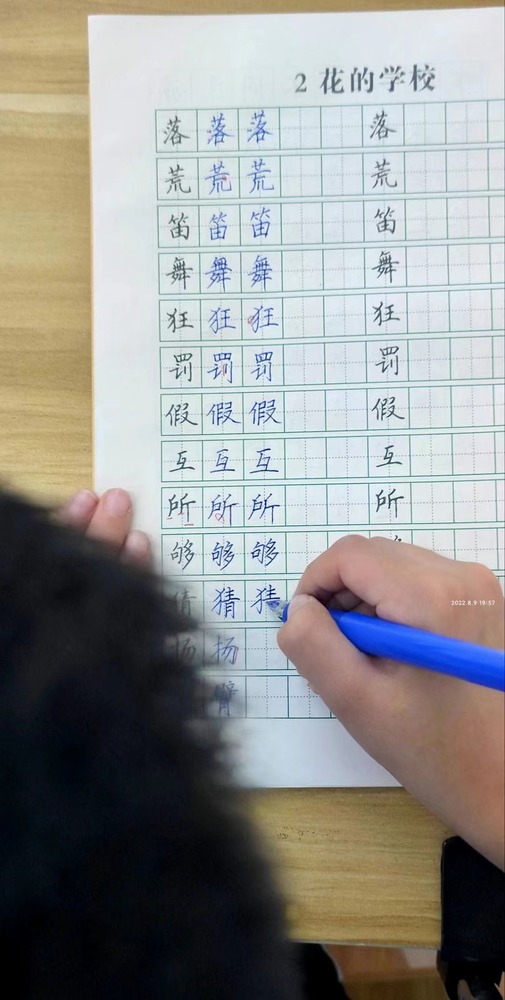 2 花的学校
落 落 落 落
荒 荒 荒 荒
笛 笛 笛 笛
舞 舞 舞 舞
狂 狂 狂 狂
罚 罚 罚 罚
假 假 假 假
互 互 互 互
所 所 所 所
够 够 够
猜 猜 猜
2022.8.9 19:57
扬 扬
臂